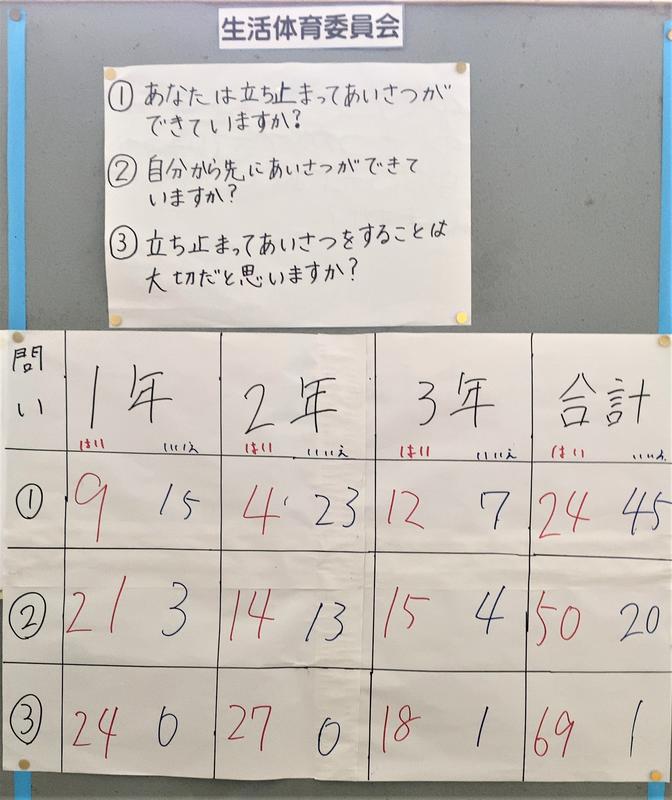 生活体育委員会
① あなたは立ち止まってあいさつが
できていますか?
② 自分から先にあいさつができて
いますか?
③ 立ち止まってあいさつをすることは
大切だと思いますか?
問い 1年 2年 3年 合計
はい いいえ はい いいえ はい いいえ はい いいえ
① 9 15 4 23 12 7 24 45
② 21 3 14 13 15 4 50 20
③ 24 0 27 0 18 1 69 1